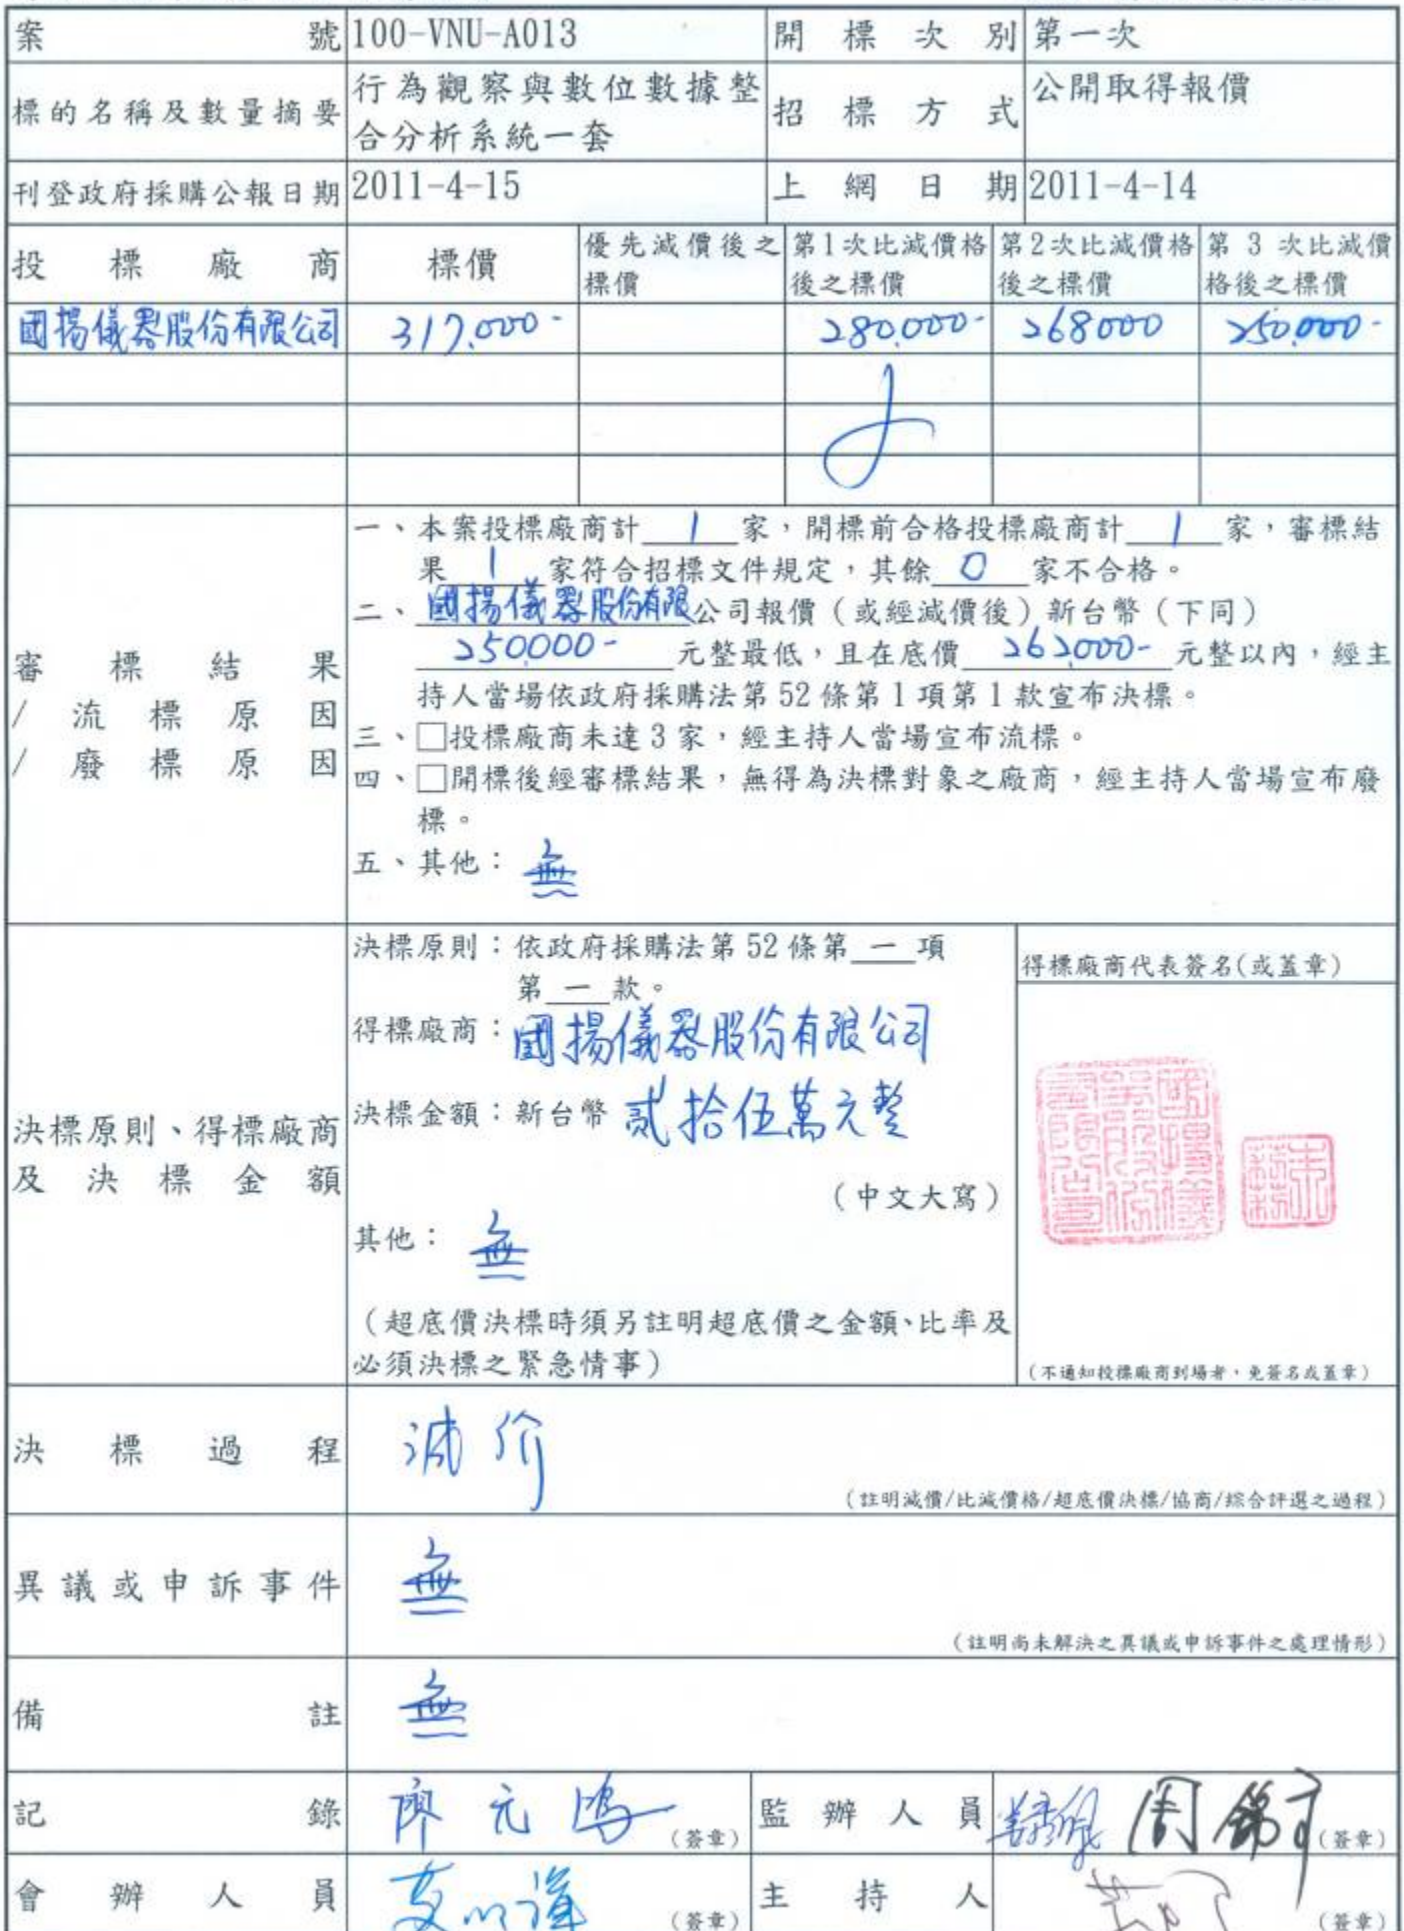 案號 100-VNU-A013 開標次別 第一次
標的名稱及數量摘要 行為觀察與數位數據整
合分析系統一套
招標方式 公開取得報價
刊登政府採購公報日期 2011-4-15 上網日期 2011-4-14
投標廠商 標價 優先減價後之
標價
第1次比減價格
後之標價
第2次比減價格
後之標價
第 3 次比減價
格後之標價
國揚儀器股份有限公司 317,000- 280,000- 268000 250,000-
審標結果
/流標原因
/廢標原因
一、本案投標廠商計 1 家,開標前合格投標廠商計 1 家,審標結
果 1 家符合招標文件規定,其餘 0 家不合格。
二、國揚儀器股份有限公司報價(或經減價後)新台幣(下同)
250000- 元整最低,且在底價 262000- 元整以內,經主
持人當場依政府採購法第 52 條第 1 項第 1 款宣布決標。
三、□投標廠商未達 3 家,經主持人當場宣布流標。
四、□開標後經審標結果,無得為決標對象之廠商,經主持人當場宣布廢
標。
五、其他:無
決標原則、得標廠商
及決標金額
決標原則:依政府採購法第 52 條第 一 項
第 一 款。
得標廠商:國揚儀器股份有限公司
決標金額:新台幣 貳拾伍萬元整
(中文大寫)
其他:無
(超底價決標時須另註明超底價之金額、比率及
必須決標之緊急情事)
得標廠商代表簽名(或蓋章)
(不通知投標廠商到場者,免簽名或蓋章)
決標過程 減价
(註明減價/比減價格/超底價決標/協商/綜合評選之過程)
異議或申訴事件 無
(註明尚未解決之異議或申訴事件之處理情形)
備註 無
記錄 廖元鴻 (簽章) 監辦人員 (簽章)
會辦人員 (簽章) 主持人 (簽章)